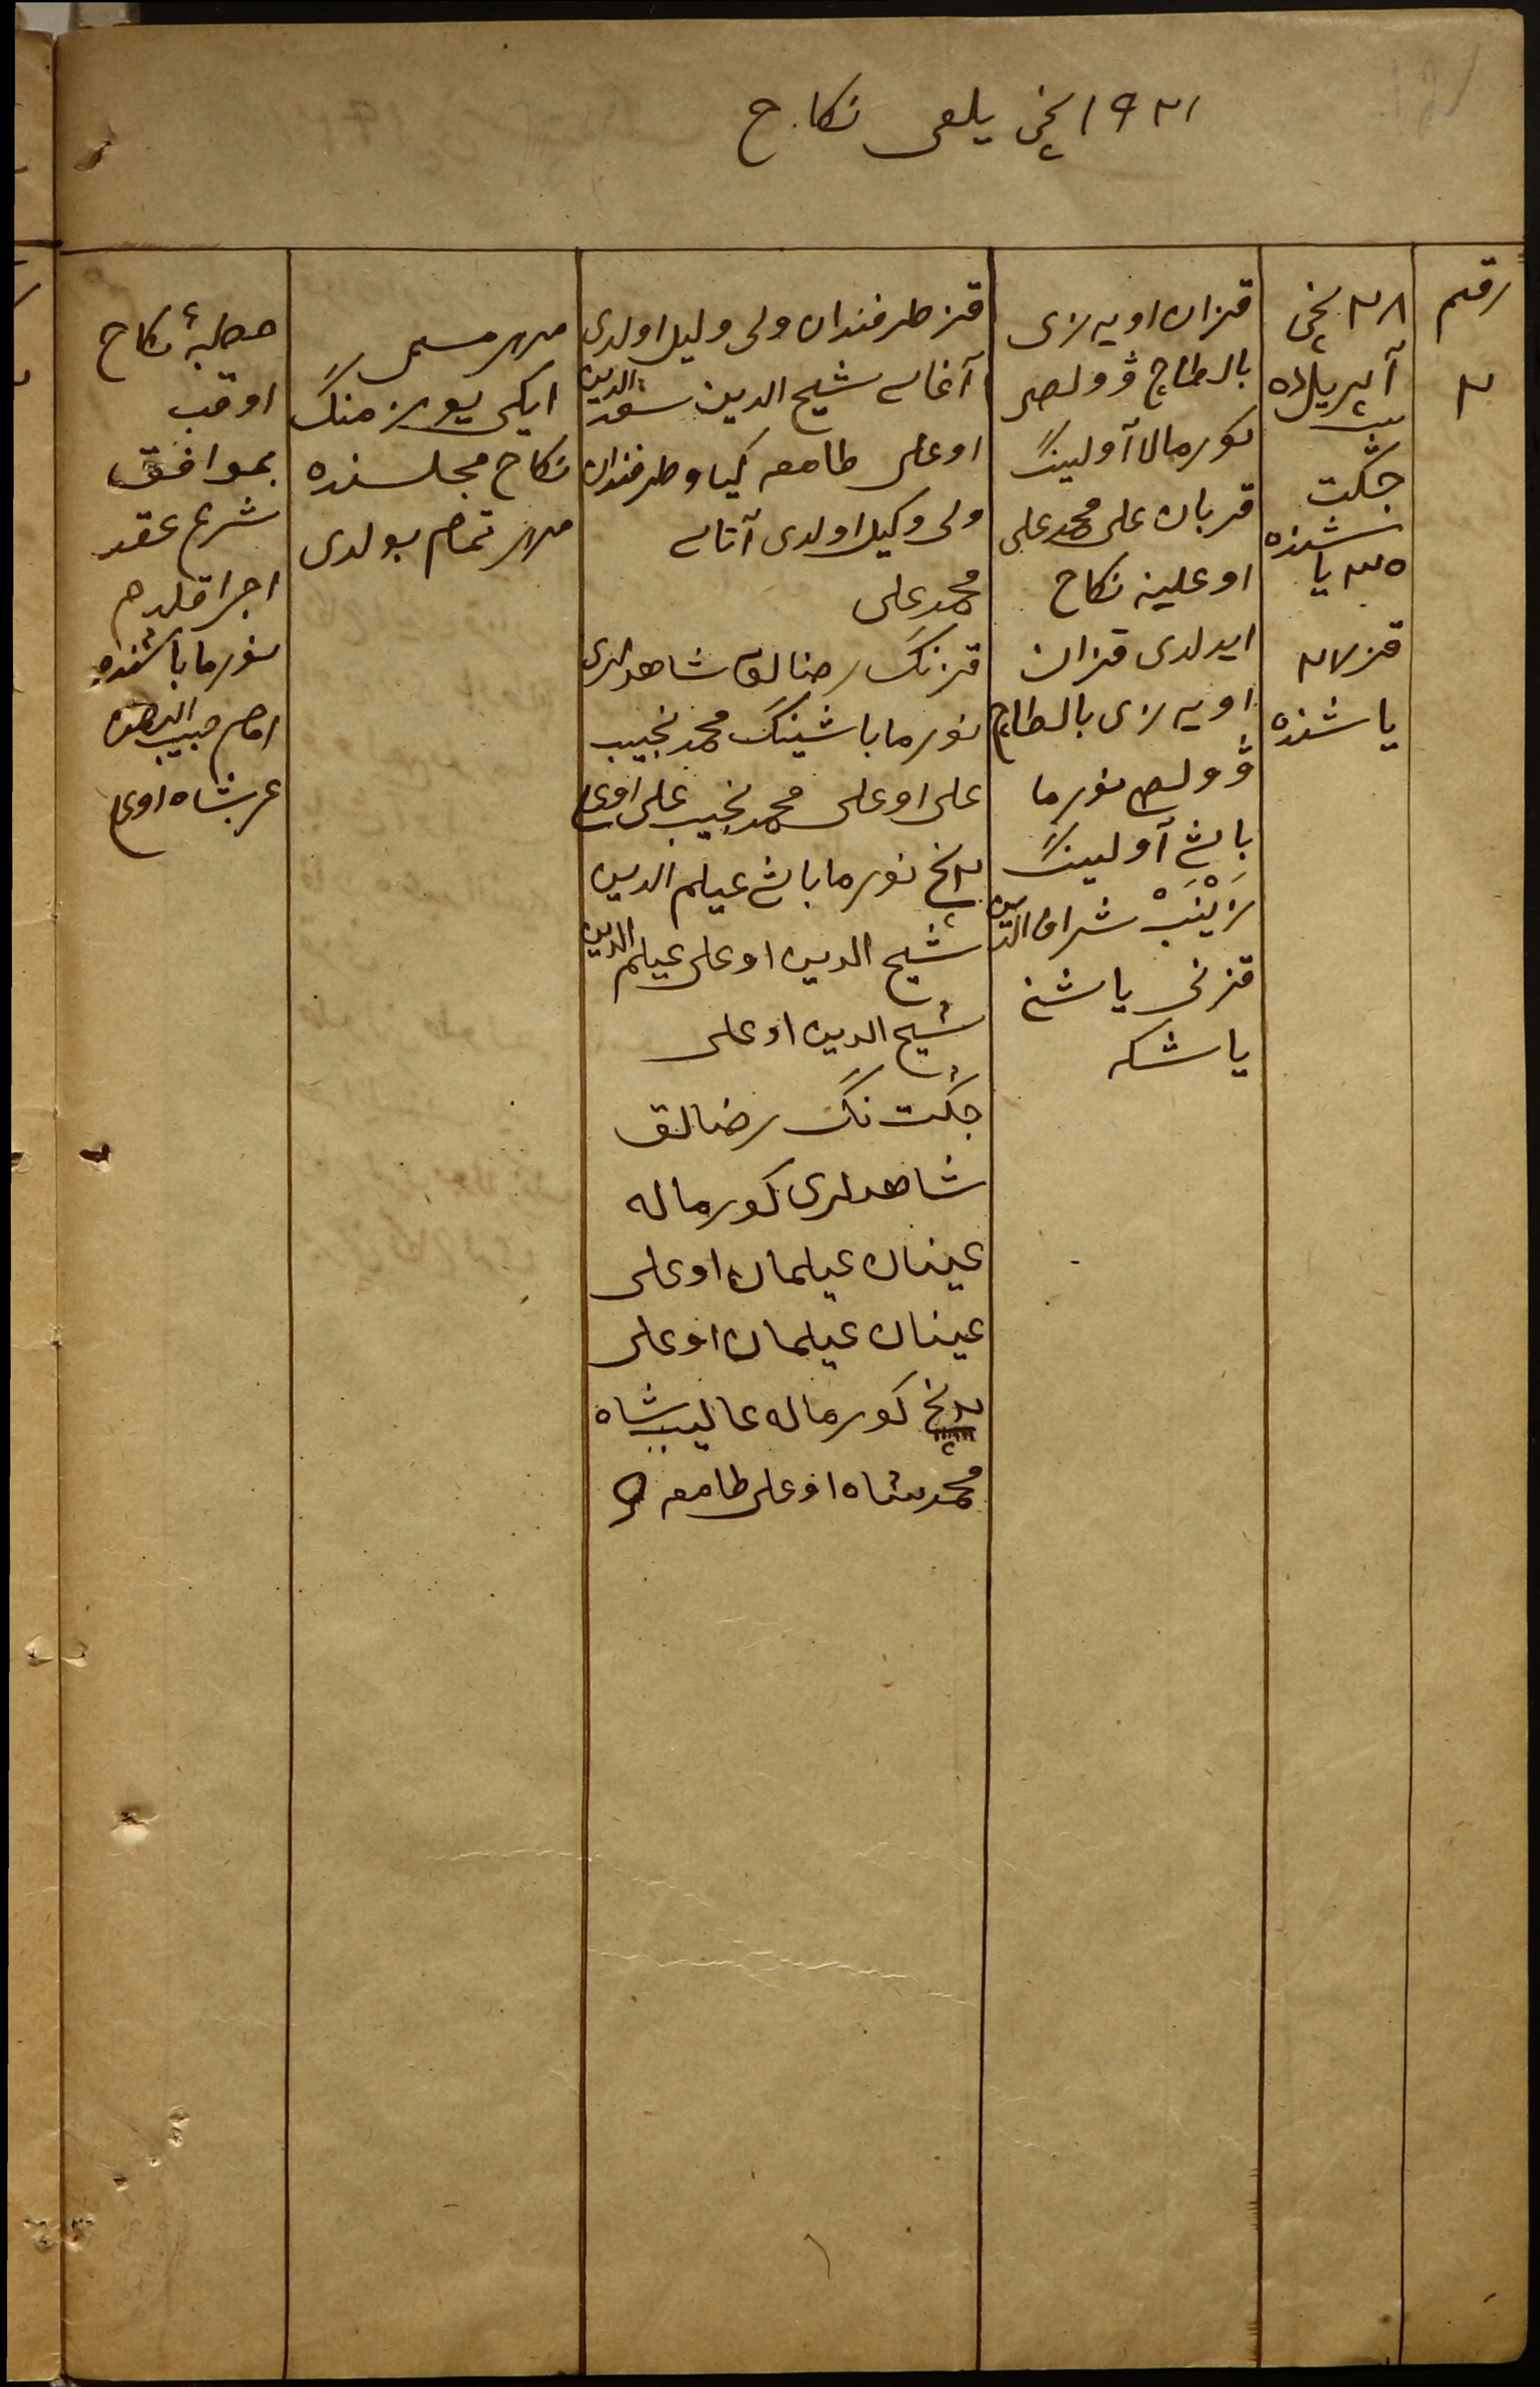 ١٩٢١ نچی یلغی نکاح
رقم
٢
٢٨ نچی
آپریلده
جگت
٢٥ یا
شنده
قز ٢٧
یاشنده
قزان اویه زی
بالطاچ ڤولصی
کورمالا آولینڭ
قربان علی محمد علی
اوغلینه نکاح
ایدلدی قزان
اویه زی بالطاچ
ڤولصی نورما
باش آولینڭ
زَيْنَبْ شراف الدین
قزنی یاشی
یاشکه
قز طرفندان ولی وکیل اولدی
آغاسی شیح الدین سعد الدین
اوغلی طامغه کیاو طرفندان
ولی وکیل اولدی آتاسی
محمد علی
قزنڭ رضالق شاهدلری
نورما باشینڭ محمد نجیب
علی اوغلی محمد نجیب علی اوغلی
٢ نچی نورما باش عیلم الدین
شیح الدین اوغلی عیلم الدین
شیح الدین اوغلی
جگت نڭ رضالق
شاهدلری کورماله
عینان عیلمان اوغلی
عینان عیلمان اوغلی
٢ نچی کورماله عالیب شاه
محمد شاه اوغلی طامغه
مهر مسمی
ایکی یوز منڭ
نکاح مجلسنده
مهر تمام بولدی
خطبهٔ نکاح
اوقب
بموافق
شرع عقد
اجرا قلدم
نورما باشنده
امام حبیب الرحمن
عربشاه اوغلی